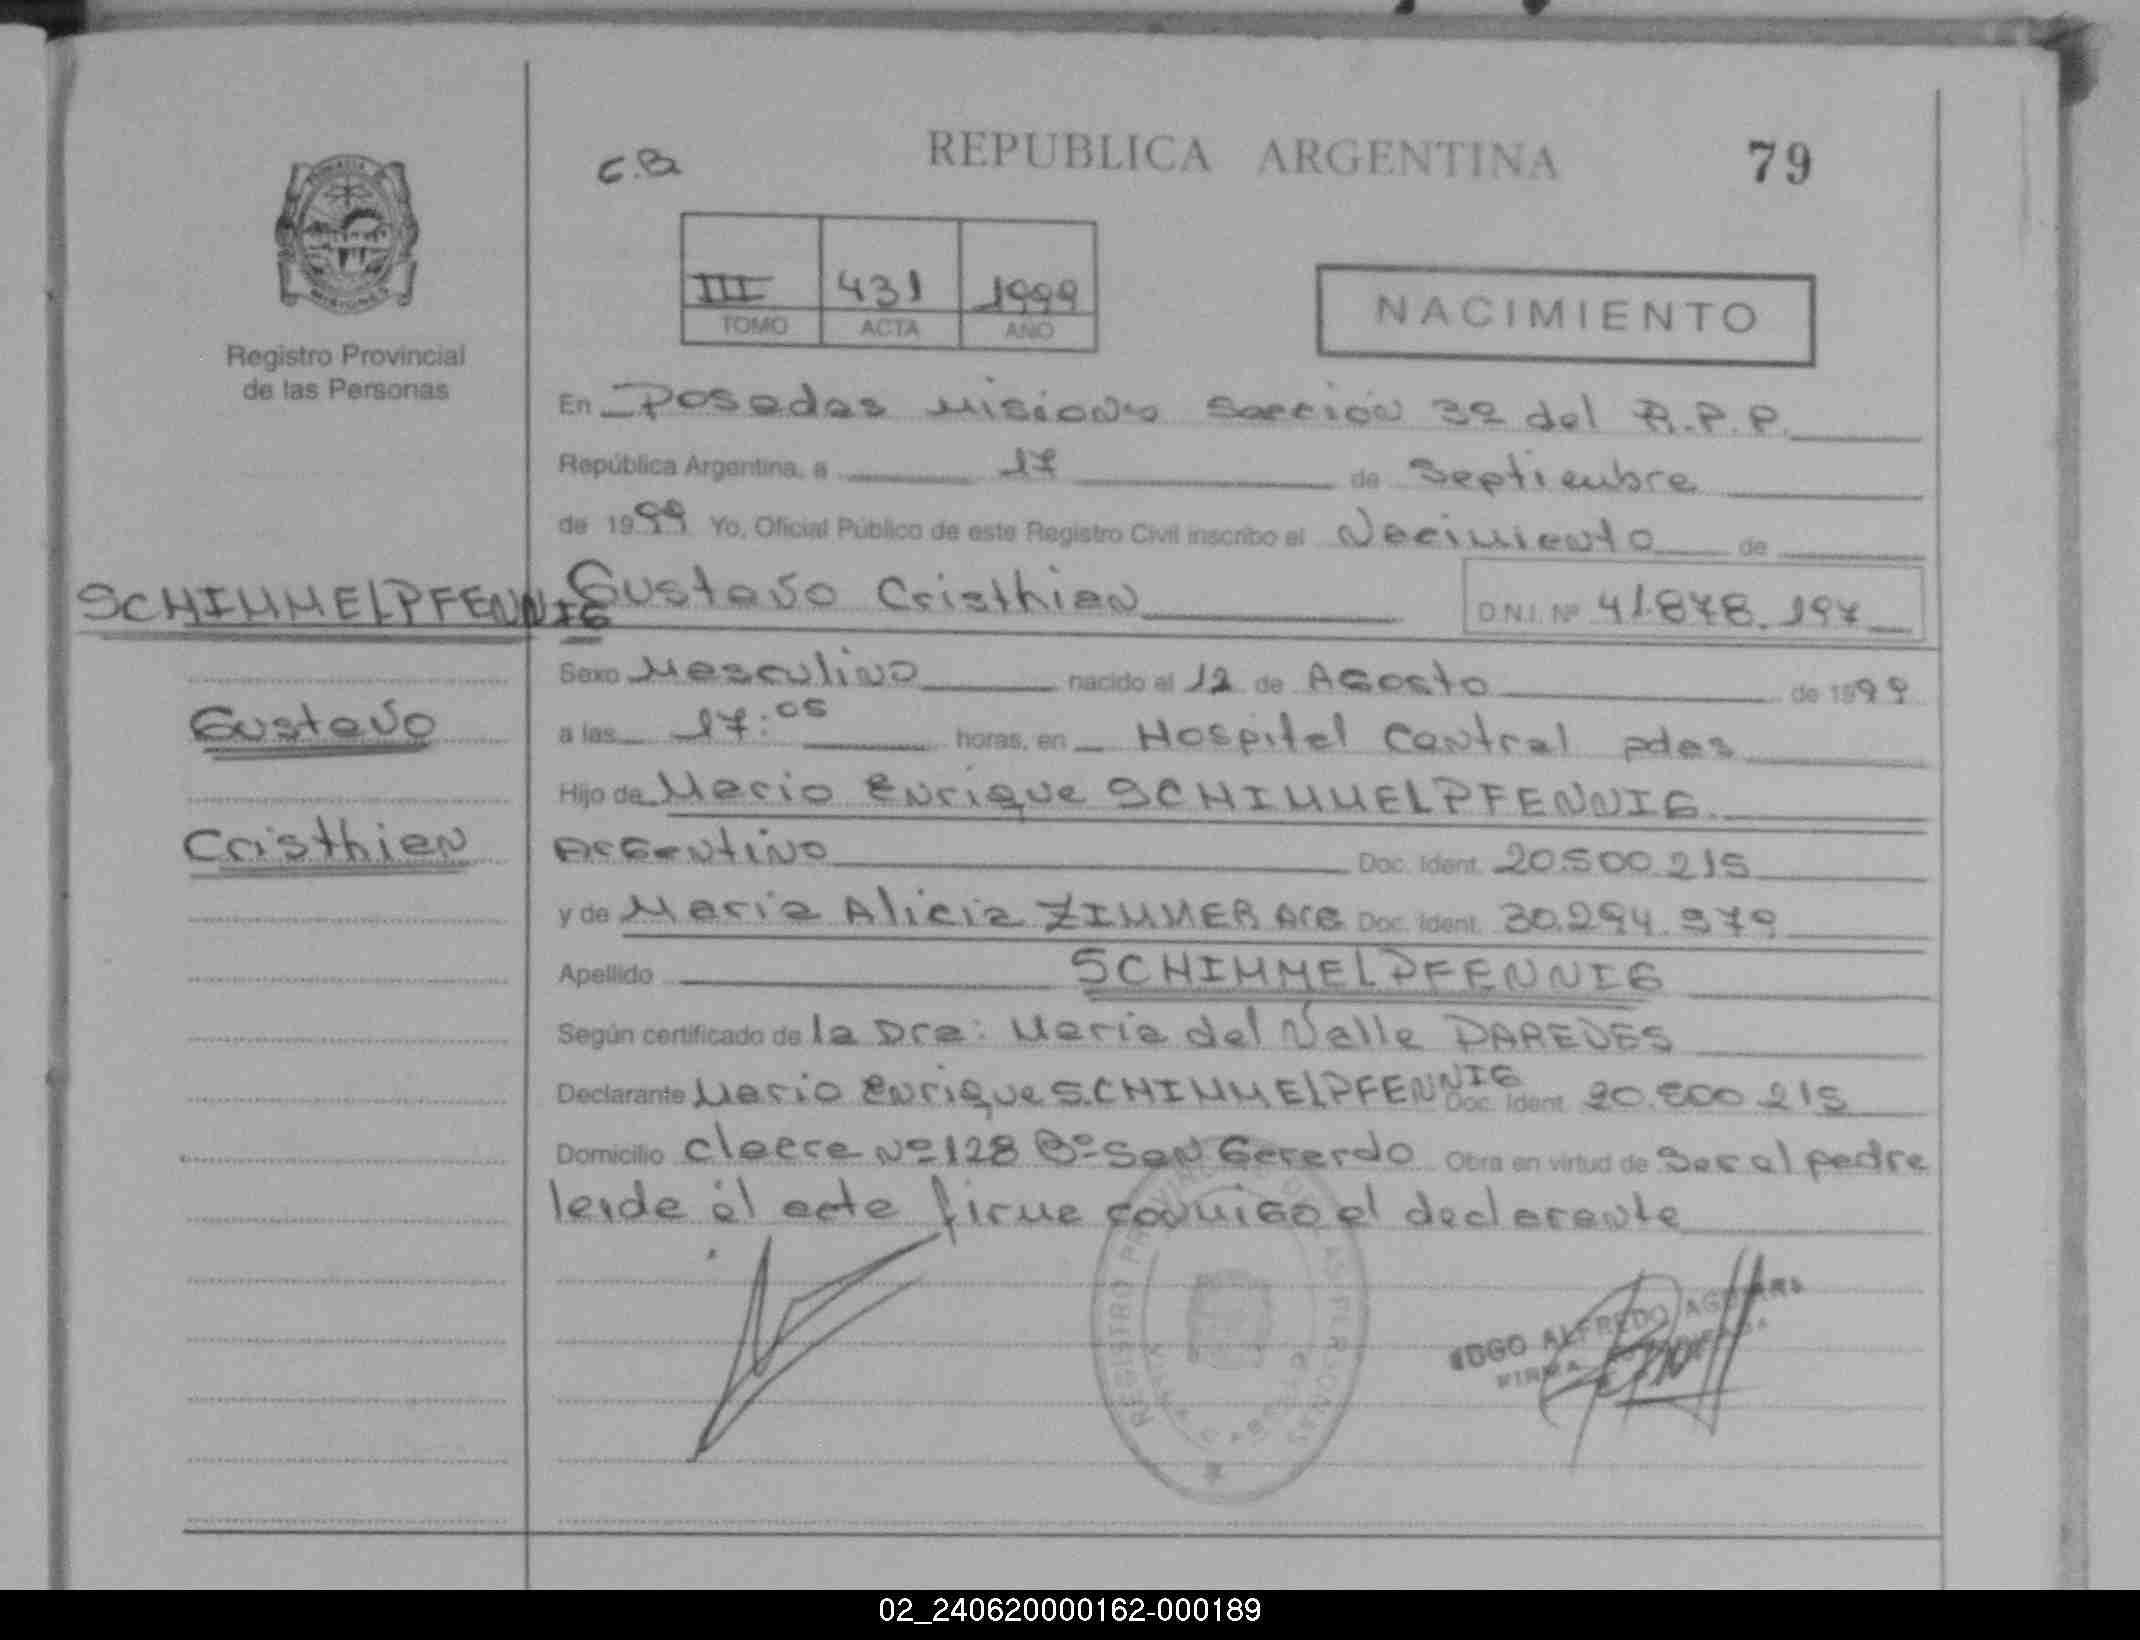 REPUBLICA ARGENTINA
79
C.B.
III 431 1999
TOMO ACTA AÑO
NACIMIENTO
PROVINCIA
MISIONES
Registro Provincial
de las Personas
En Posadas Misiones Sección 3º del R.P.P.
República Argentina, a 17 de Septiembre
de 1999 Yo, Oficial Público de este Registro Civil inscribo el Nacimiento de
Gustavo Cristhian D.N.I. Nº 41.878.197
SCHIMMELPFENNIG
Gustavo
Cristhian
Sexo Masculino nacido el 12 de Agosto de 1999
a las 17:05 horas, en Hospital Central pdas
Hijo de Mario Enrique SCHIMMELPFENNIG.
Argentino Doc. Ident. 20.500.215
y de María Alicia ZIMMER Arg Doc. Ident. 30.294.979
Apellido SCHIMMELPFENNIG
Según certificado de la Dra: María del Valle PAREDES
Declarante Mario Enrique SCHIMMELPFENNIG Doc. Ident. 20.500.215
Domicilio Nº 128 Bº San Gerardo Obra en virtud de Ser el padre
leída el acta firma conmigo el declarante
REGISTRO PROVINCIAL DE LAS PERSONAS
HUGO ALFREDO
FIRMA
02_240620000162-000189